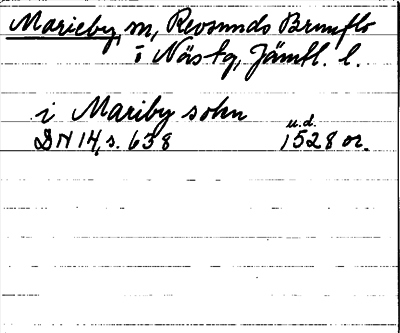 Marieby, m, Revsunds Brunflo
i Näs tg, Jämtl. l.
i Mariby sokn
u.d.
DN 14, s. 638 1528 or.